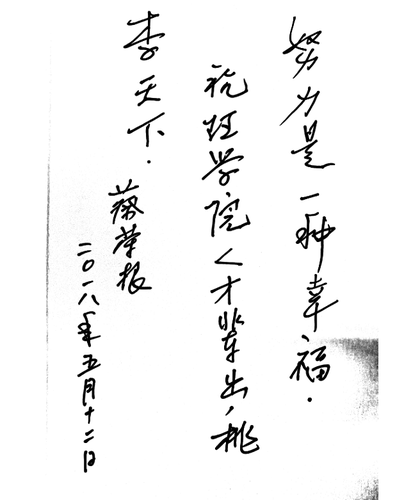 努力是一种幸福.
祝理学院人才辈出,桃
李天下.
蔡荣根
二〇一八年五月十二日